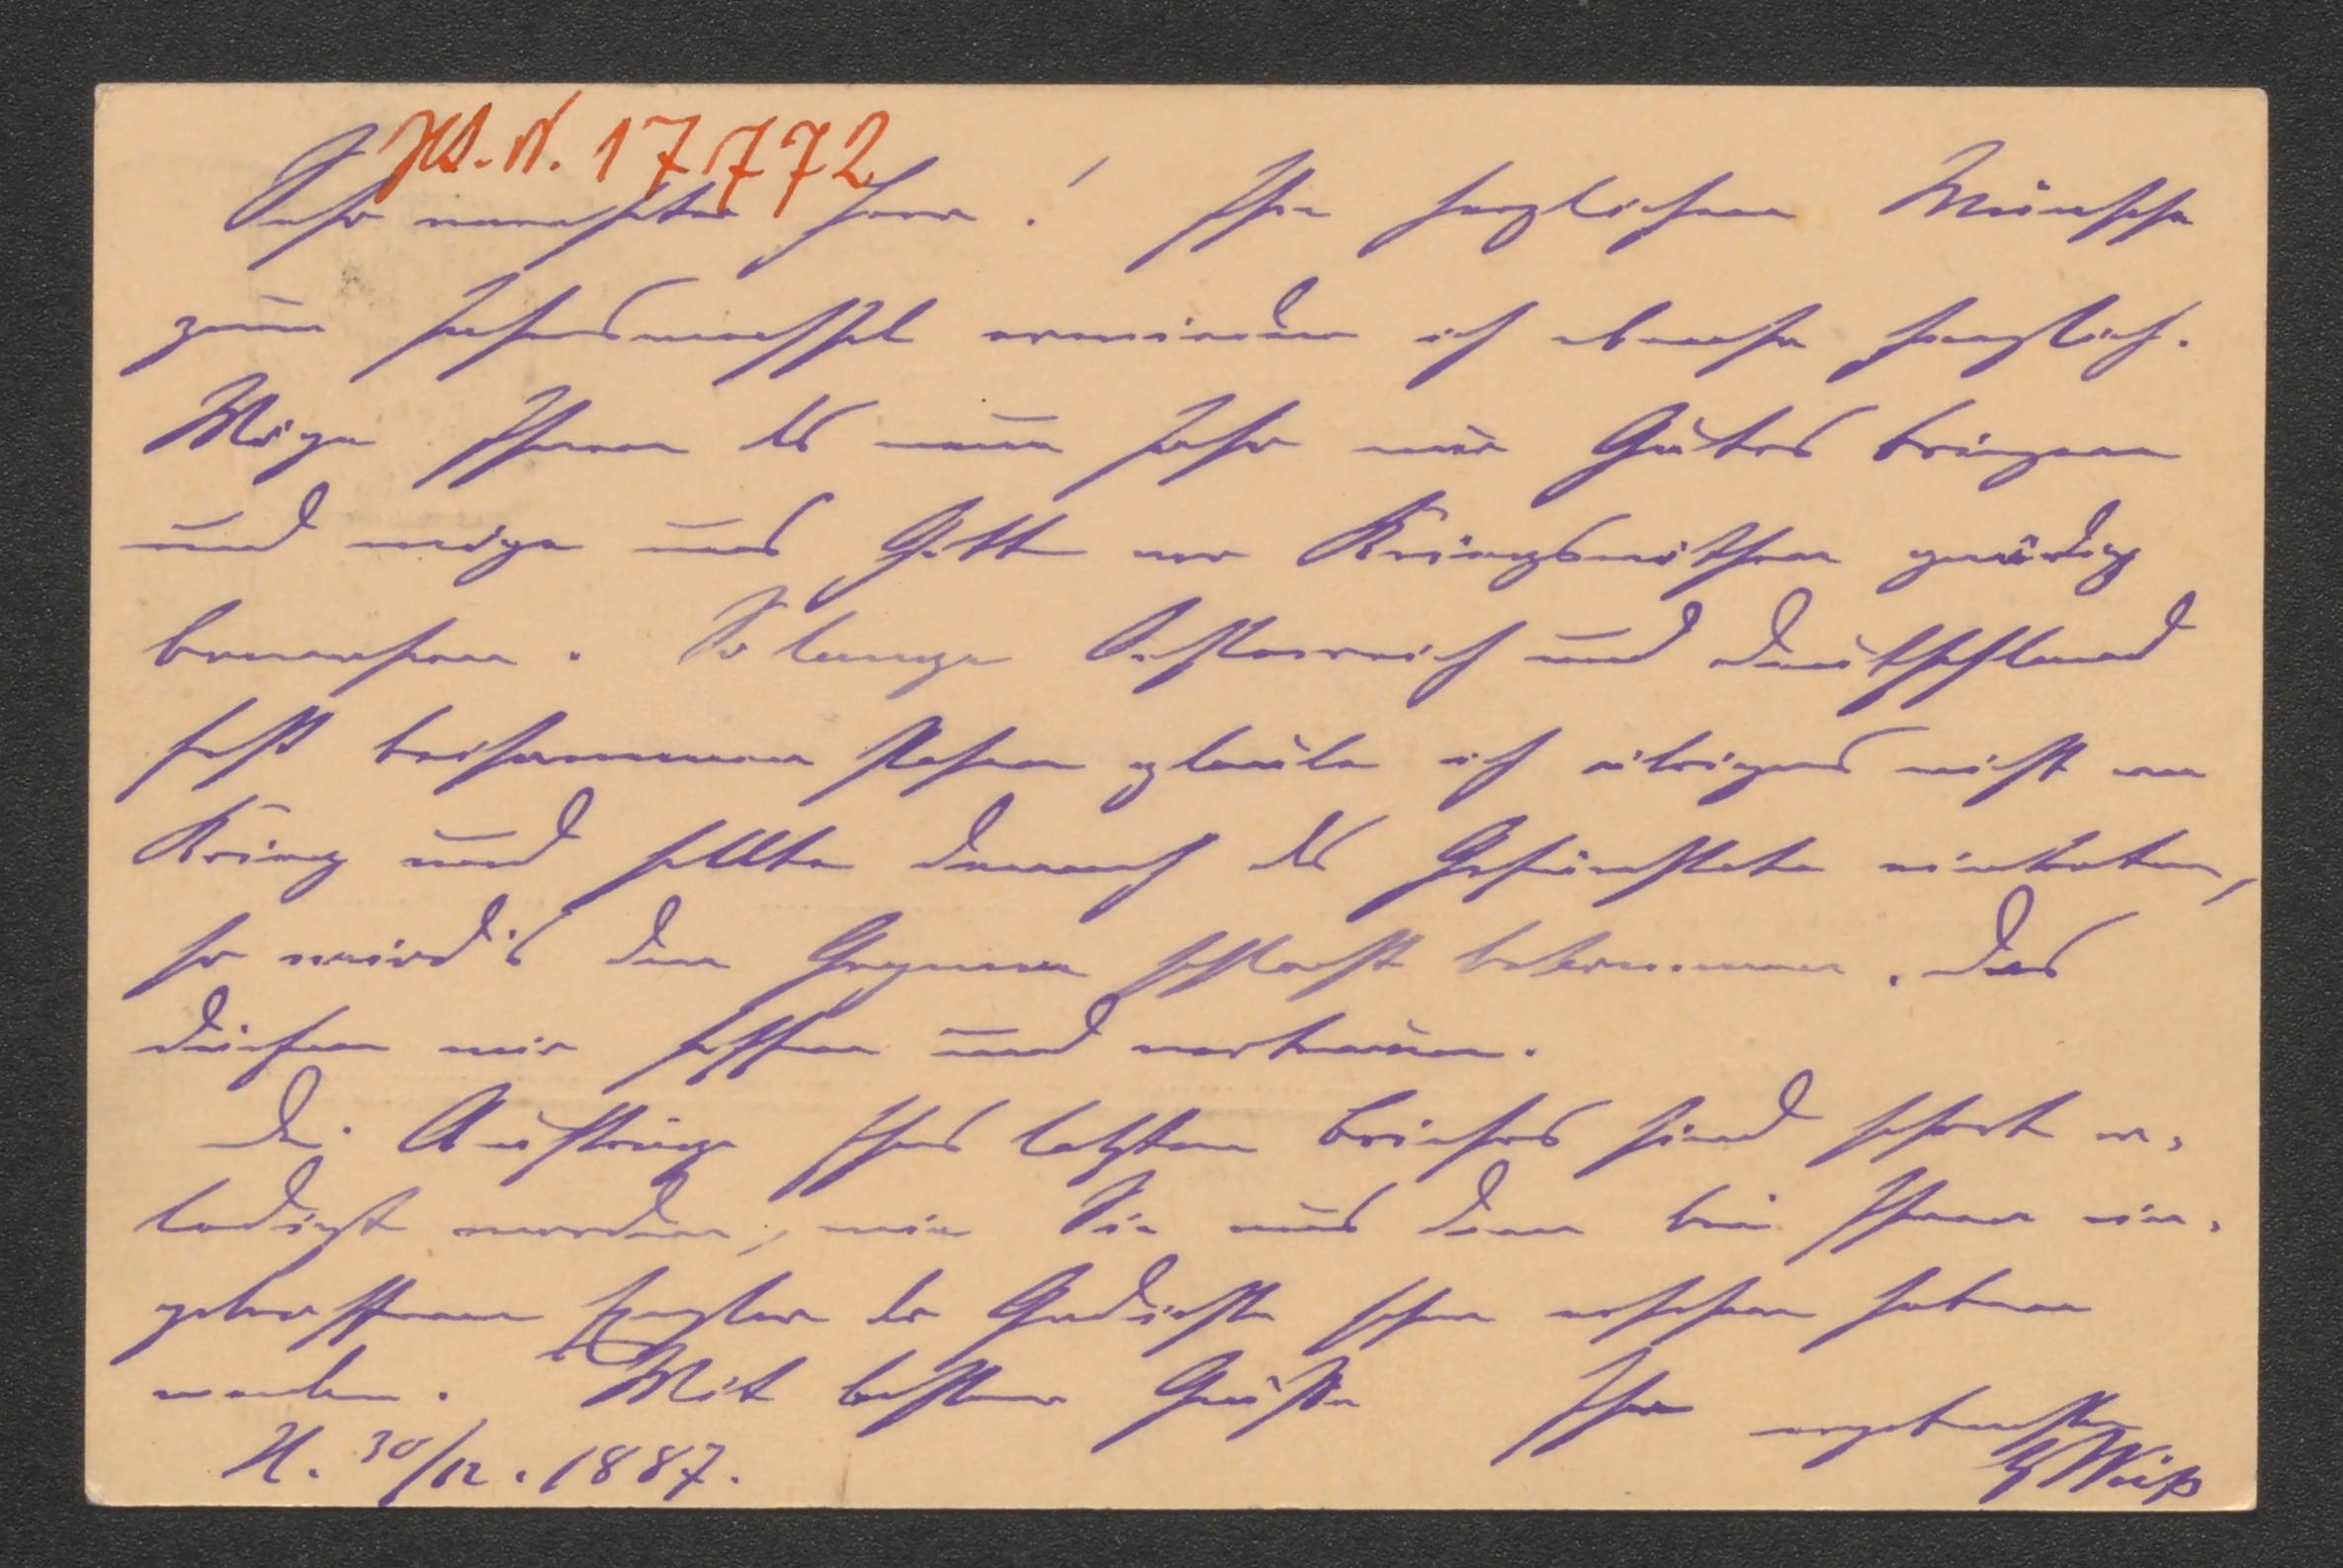 Hs. N. 17772
Sehr verehrter Herr! Ihre herzlichen Wünsche
zum Jahreswechsel erwiedere ich ebenso herzlich.
Möge Ihnen das neue Jahr nur Gutes bringen
und möge uns Gott vor Kriegsnöthen gnädig
bewahren. So lange Oesterreich und Deutschland
fest beisammen stehen glaube ich übrigens nicht an
Krieg und sollte dennoch das Gefürchtete eintreten,
so wird's den Gegnern schlecht bekommen. Das
dürfen wir hoffen und vertrauen.
Die Aufträge Ihres letzten Briefes sind sofort er-
ledigt worden, wie Sie aus dem bei Ihnen ein-
getroffenen Exemplar der Gedichte schon ersehen haben
werden. Mit bestem Gruße Ihr ergebenster
N. 30/12. 1887. Weiß